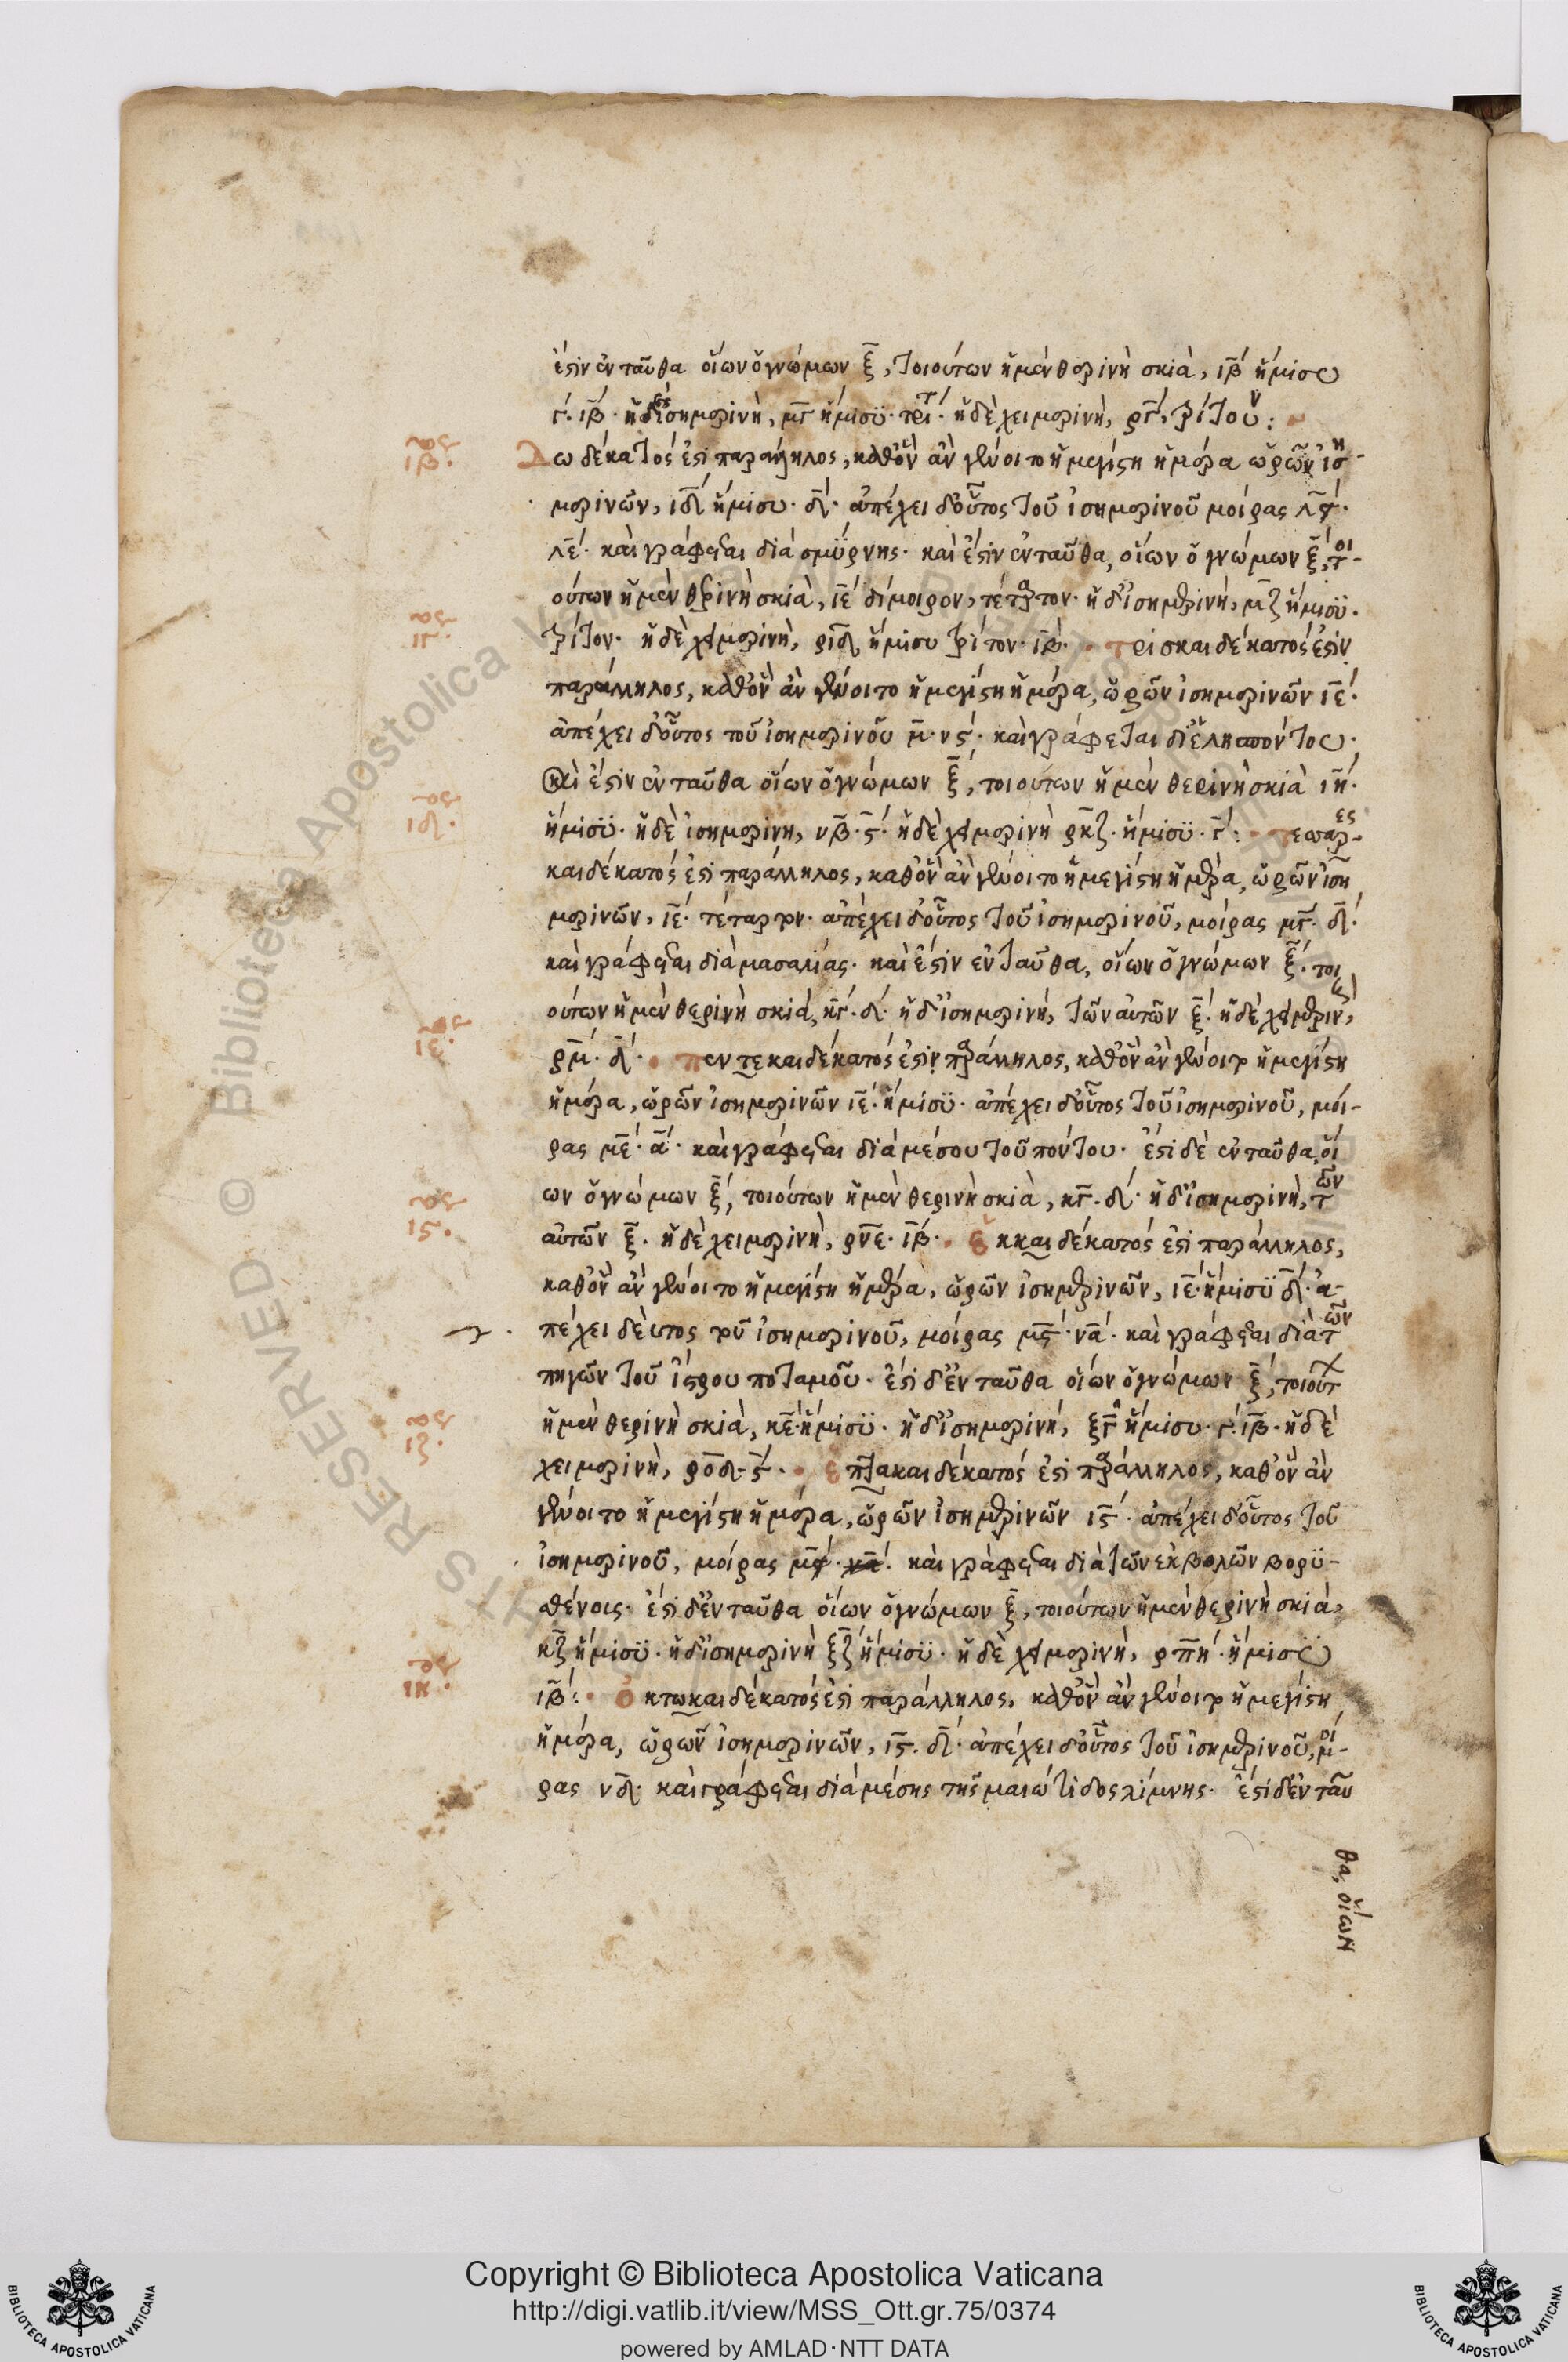 ἐστὶν ἐνταῦθα οἵων ὁ γνώμων ξ̄, τοιούτων ἡ μὲν θερινὴ σκιὰ, ιβ̄ ἥμισυ
γ΄. ιβ̄. ἡ δὲ ἰσημερινὴ, μγ̄ ἥμισυ. τρίτ. ἡ δὲ χειμερινὴ, ργ̄, τρίτον:
Δωδέκατός ἐστι παράλληλος, καθ᾽ ὃν ἂν γένοιτο ἡ μεγίστη ἡμέρα ὡρῶν ἰση-
μερινῶν, ιδ̄ ἥμισυ. δ΄. ἀπέχει δ᾽ οὗτος τοῦ ἰσημερινοῦ μοίρας λς̄.
λε̄. καὶ γράφεται διὰ σμύρνης. καὶ ἔστιν ἐνταῦθα, οἵων ὁ γνώμων ξ̄, τοι-
ούτων ἡ μὲν θερινὴ σκιὰ, ιε̄ δίμοιρον, τέταρτον. ἡ δ᾽ ἰσημερινὴ, μζ̄ ἥμισυ.
τρίτον. ἡ δὲ χειμερινὴ, ριδ̄ ἥμισυ τρίτον. ιβ̄. τρισκαιδέκατός ἐστιν
παράλληλος, καθ᾽ ὃν ἂν γένοιτο ἡ μεγίστη ἡμέρα, ὡρῶν ἰσημερινῶν ιε̄.
ἀπέχει δ᾽ οὗτος τοῦ ἰσημερινοῦ μ̄. νς΄. καὶ γράφεται δι᾽ ἑλησπόντου.
καὶ ἐστὶν ἐνταῦθα οἵων ὁ γνώμων ξ̄, τοιούτων ἡ μὲν θερινὴ σκιὰ ιη̄.
ἥμισυ. ἡ δὲ ἰσημερινη, νβ̄. ς̄. ἡ δὲ χειμερινὴ ρκζ̄. ἥμισυ. γ̄: τεσσαρες-
καιδέκατός ἐστι παράλληλος, καθ᾽ ὃν ἂν γένοιτο ἡ μεγίστη ἡμέρα, ὡρῶν ἰση
μερινῶν, ιε̄. τέταρτον. ἀπέχει δ᾽ οὗτος τοῦ ἰσημερινοῦ, μοίρας μγ̄. δ̄.
καὶ γράφεται διὰ μασαλίας. καὶ ἔστιν ἐνταῦθα, οἵων ὁ γνώμων ξ̄. τοι
ούτων ἡ μὲν θερινὴ σκιά, κγ̄. δ΄. ἡ δ᾽ ἰσημερινή, τῶν αὐτῶν ξ̄. ἡ δὲ χειμερινὴ,
ρμ̄. δ̄. πεντεκαιδέκατός ἐστιν παράλληλος, καθ᾽ ὃν ἂν γένοιτο ἡ μεγίστη
ἡμέρα, ὡρῶν ἰσημερινῶν ιε̄. ἥμισυ. ἀπέχει δ᾽ οὗτος τοῦ ἰσημερινοῦ, μοί-
ρας με̄. ᾱ. καὶ γράφεται διὰ μέσου τοῦ πόντου. ἔστι δὲ ἐνταῦθα, οἵ
ων ὁ γνώμων ξ̄, τοιούτων ἡ μὲν θερινὴ σκιὰ, κγ̄. δ΄. ἡ δ᾽ ἰσημερινὴ, τῶν
αὐτῶν ξ̄. ἡ δὲ χειμερινὴ, ρνε̄. ιβ̄. ἑκκαιδέκατός ἐστι παράλληλος,
καθ᾽ ὃν ἂν γένοιτο ἡ μεγίστη ἡμέρα, ὡρῶν ἰσημερινῶν, ιε̄. ἥμισυ δ̄. ἀ-
πέχει δὲ ὗτος τοῦ ἰσημερινοῦ, μοίρας μς̄. νᾱ. καὶ γράφεται διὰ τῶν
πηγῶν τοῦ ἴστρου ποταμοῦ. ἔστι δ᾽ ἐνταῦθα οἵων ὁ γνώμων ξ̄, τοιούτ
ἡ μὲν θερινὴ σκιὰ, κε̄. ἥμισυ. ἡ δ᾽ ἰσημερινή, ξγ̄ ἥμισυ. γ΄. ιβ̄. ἡ δὲ
χειμερινὴ, ροδ̄. ς̄. ἑπτακαιδέκατός ἐστι παράλληλος, καθ᾽ ὃν ἂν
γένοιτο ἡ μεγίστη ἡμέρα, ὡρῶν ἰσημερινῶν ις̄. ἀπέχει δ᾽ οὗτος τοῦ
ἰσημερινοῦ, μοίρας νᾱ. καὶ γράφεται διὰ τῶν ἐκβολῶν βορυ-
σθένοις. ἔστι δ᾽ ἐνταῦθα οἵων ὁ γνώμων ξ̄, τοιούτων ἡ μὲν θερινὴ σκιὰ,
κζ̄ ἥμισυ. ἡ δ᾽ ἰσημερινὴ ξζ̄ ἥμισυ. ἡ δὲ χειμερινὴ, ρπη̄. ἥμισυ
ιβ̄: ὀκτωκαιδέκατός ἐστι παράλληλος, καθ᾽ ὃν ἂν γένοιτο ἡ μεγίστη
ἡμέρα, ὡρῶν ἰσημερινῶν, ις̄. δ̄. ἀπέχει δ᾽ οὗτος τοῦ ἰσημερινοῦ, μοί-
ρας νδ̄. καὶ γράφεται διὰ μέσης τῆς μαιώτιδος λίμνης. ἔστι δ᾽ ἐνταῦ
θα, οἵων
ιβ.
ιγ.
ιδ.
ιε.
ις.
ιζ.
ιη.
Biblioteca Apostolica Vaticana
RIGHTS RESERVED ©
Copyright © Biblioteca Apostolica Vaticana
http://digi.vatlib.it/view/MSS_Ott.gr.75/0374
powered by AMLAD·NTT DATA
BIBLIOTECA APOSTOLICA VATICANA
BIBLIOTECA APOSTOLICA VATICANA